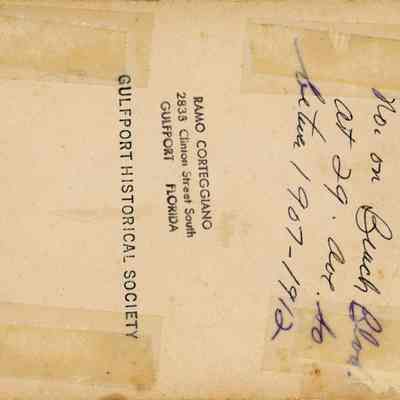 No. on Beach Blvd.
at 29. Ave. to
betw. 1907-1912
RAMO CORTEGGIANO
2838 Clinton Street South
GULFPORT FLORIDA
GULFPORT HISTORICAL SOCIETY